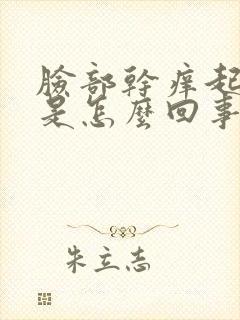 臉部幹癢起
是怎麼回事
朱立志